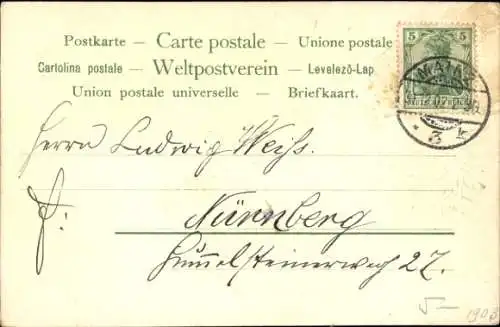 Postkarte — Carte postale — Unione postale
Cartolina postale — Weltpostverein — Levelező-Lap
Union postale universelle — Briefkaart.
5 5
MAINZ
DEUTSCHES REICH
* 3 k
Herrn Ludwig Weiss.
Nürnberg
Hummelsteinerweg 27.
5
1903